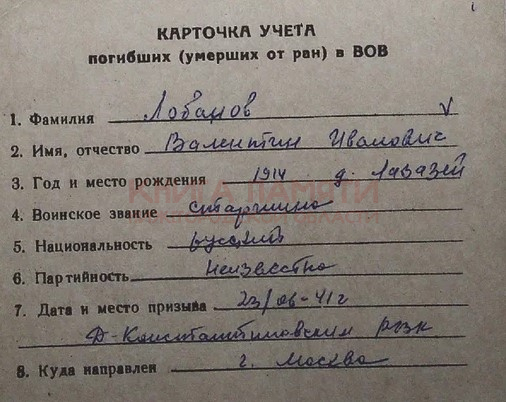 КАРТОЧКА УЧЕТА
погибших (умерших от ран) в ВОВ
1. Фамилия Лобанов V
2. Имя, отчество Валентин Иванович
3. Год и место рождения 1914 д. Лабазей
КНИГА ПАМЯТИ
4. Воинское звание старшина
5. Национальность русский
6. Партийность неизвестно
7. Дата и место призыва 23/06-41г
Д-Константиновским рвк
8. Куда направлен г. Москва